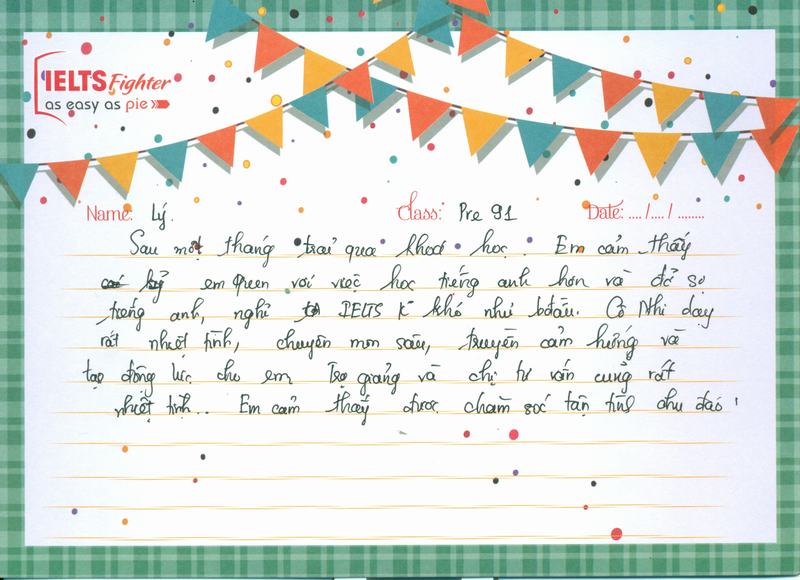 IELTS Fighter
as easy as pie
Name: Lý. Class: Pre 91 Date: .... /.... / ........
Sau một tháng trải qua khoá học. Em cảm thấy
em quen với việc học tiếng anh hơn và đỡ sợ
tiếng anh, nghĩ IELTS K khó như bđầu. Cô Nhi dạy
rất nhiệt tình, chuyên môn sâu, truyền cảm hứng và
tạo động lực cho em. Trợ giảng và chị tư vấn cũng rất
nhiệt tình.. Em cảm thấy được chăm sóc tận tình chu đáo!